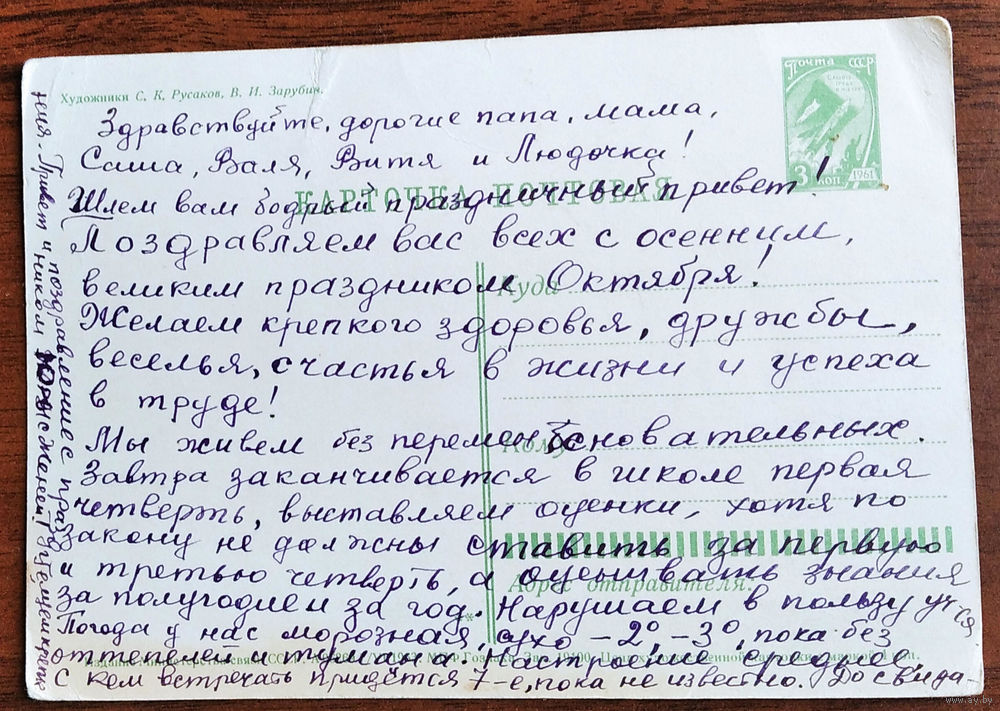 Художники С. К. Русаков, В. И. Зарубин.
Почта СССР
3 коп.
1961
КАРТОЧКА ПОЧТОВАЯ
Здравствуйте, дорогие папа, мама,
Саша, Валя, Витя и Людочка!
Шлем вам бодрый праздничный привет!
Поздравляем вас всех с осенним,
великим праздником Октября!
Желаем крепкого здоровья, дружбы,
веселья, счастья в жизни и успеха
в труде!
Мы живем без перемен основательных.
Завтра заканчивается в школе первая
четверть, выставляем оценки, хотя по
закону не должны ставить за первую
и третью четверть, а оценивать знания
за полугодие и за год. Нарушаем в пользу уч-ся
Погода у нас морозная, сухо -2°, -3°, пока без
оттепелей и тумана. Настроение среднее.
С кем встречать придется 7-е, пока не известно. До свида-
ния. Привет и поздравление с празд
ником
Целуем крепко
Куда
Кому
Адрес отправителя:
www.ay.by